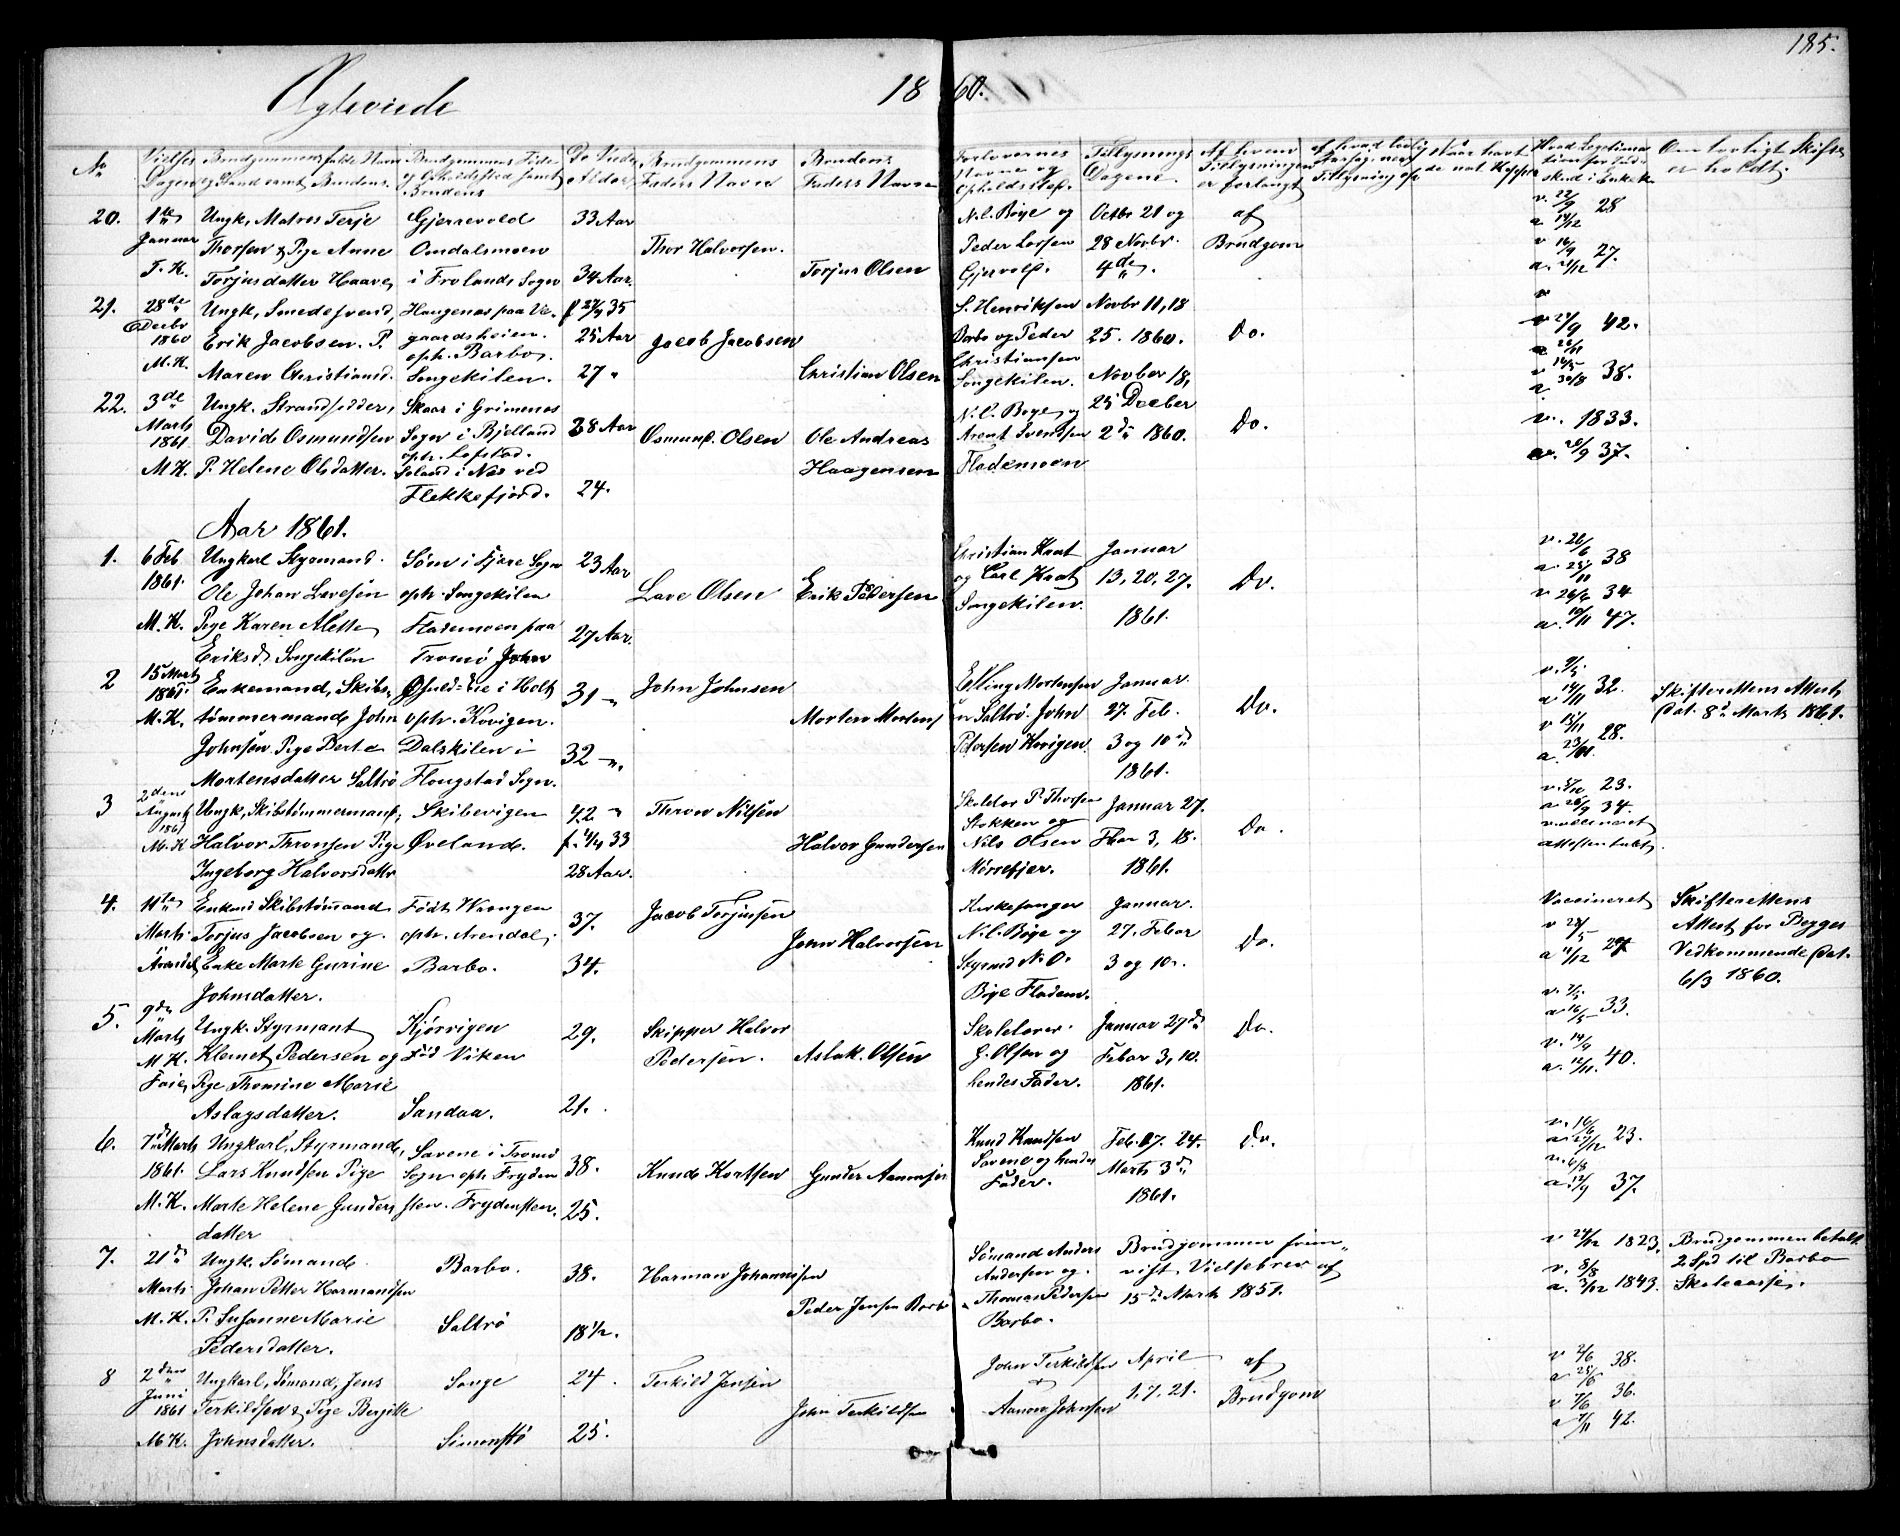 185.
Ægteviede 18 60.
No
Vielses Dagen
Brudgommens fulde Navn og Stand samt Brudens
Brudgommens Føde og Opholdssted samt Brudens
De Viede Alder
Brudgommens Faders Navn
Brudens Faders Navn
Forlovernes Navne og Opholdssted.
Tillysnings Dagene.
Af hvem Tillysningen er forlangt
Om lovligt Skifte er holdt.
20. 1te Januar T. K.
Ungk. Matros Terje
Thorsen & Pige Anne
Torjusdatter Haave
Gjerrevold
Omdalsmoen
i Frolands Sogn
33 Aar
34 Aar.
Thor Halvorsen.
Torjus Olsen
N. C. Bøye og
Peder Larsen
Gjervold.
Octbr 21 og
28 Novbr.
4de.
af
Brudgom
28
27.
21. 28de Decbr 1860 M. K.
Ungk. Smedesvend,
Erik Jacobsen. P.
Maren Christiansd.
Haugenes paa Ve-
gaardsheien.
oph. Barbo.
Songekilen.
25 Aar
27 "
Jacob Jacobsen
Christian Olsen
S. Henriksen
Barbo og Peder
Christiansen
Songekilen.
Novbr 11, 18
25. 1860.
Do.
42.
38.
22. 3de Marts 1861 M K.
Ungk. Strandsidder,
David Osmundsen
P. Helene Olsdatter.
Skaar i Grimenes
Sogn i Bjelland
oph. Lofstad.
Soland i Nes ved
Flekkefjord.
28 Aar
24.
Osmund Olsen
Ole Andreas
Haagensen
N. C. Boye og
Arent Svendsen
Flademoen
Novber 18,
25 Decber
2d 1860.
Do.
v. 1833.
37.
Aar 1861.
1. 6 Feb 1861. M. K.
Ungkarl Styrmand.
Ole Johan Lavesen
Pige Karen Alette
Eriksd. Songekilen
Søm i Fjære Sogn
oph. Songekilen
Flademoen paa
Tromø
23 Aar
27 Aar.
Lave Olsen
Erik Pedersen
Christian Knat
og Carl Knat
Songekilen.
Januar
13, 20, 27.
1861.
Do.
v. 26/6 38
a. 25/11
v 26/6 34
a. 10/11 47.
2 15 Marts 1861. M. K.
Enkemand, Skibs-
tømmermand John
Johnsen. Pige Berte
Mortensdatter Saltrø
i Holt
oph. Kovigen.
Dalskilen i
Flougstad Sogn.
31 "
32 ".
John Johnsen
Morten Mortens
Elling Mortensen
Saltrø. John
Pedersen Kovigen.
Januar.
27. Feb.
3 og 10d
1861.
Do.
32.
28.
Skifterettens Attest
dat. 8d Marts 1861.
3 2den August 1861 M. K
Ungk, Skibstømmermand,
Halvor Thronsen Pige
Ingeborg Halvorsdattr
Skibevigen
Øveland.
42 "
28 Aar.
Thron Nilsen
Halvor Gundersen
Skolelær P. Thorsen
Stokken og
Nils Olsen
Mørrefjær.
Januar 27.
Fbar 3, 18.
1861.
Do.
23.
34.
vaccineret
4. 11te Marts Arendal
Enkmd Skibstømand
Torjus Jacobsen og
Enke Marte Gurine
Johnsdatter.
Født Wrengen
oph. Arendal,
Barbo.
37.
34.
Jacob Torjusen
John Halvorsen
Kirkesanger
N. C. Bøye og
Styrmd N. O.
Bøye Fladem.
Januar.
27. Febar
3 og 10.
Do.
Vaccineret
Skifterettens
Attest for Begges
Vedkommende dat.
6/3 1860.
5. 9de Marts M K.
Ungk. Styrmand
Klemet Pedersen og
Pige Thomine Marie
Aslagsdatter.
Kjørvigen
Fød Viken
Sandaa.
29.
21.
Skipper Halvor
Pedersen.
Aslak. Olsen
Skolelærer
G. Olsen og
hendes Fader.
Januar 29d
Febar 3, 10.
1861.
Do.
33.
40.
6. 7d Marts 1861. M. K.
Ungkarl, Styrmand,
Lars Knudsen Pige
Marte Helene Gunders
datter
Savene i Tromø
Sogn oph Fryden
sten. Frydensten.
38.
25.
Knud Kortsen
Gunder Aanonsen
Knud Knudsen
Savene og hendes
Fader.
Feb. 17. 24.
Marts 3d
1861.
Do.
23.
37.
7. 21d Marts M. K.
Ungk. Sømand
Johan Petter Harmandsen
P. Susanne Marie
Pedersdatter.
Barbo.
Saltrø
38.
18 1/2.
Harman Johannesen
Peder Jensen Barbo
Sømand Anders
Andersen og
Thomas Pedersen
Barbo.
Brudgommen frem-
vist Vielsebrev af
15d Marts 1851.
1823.
1843.
Brudgommen betalt
2 Spd til Barbo
Skolecasse.
8 2den Juni 1861 M K.
Ungkarl, Sømand, Jens
Terkildsen & Pige Bergitte
Johnsdatter.
Songe
Simonstø
24.
25.
Terkild Jensen
John Terkildsen
John Terkildsen
Aanon Johnsen
April
1. 7. 21.
af
Brudgom
38.
36.
42.